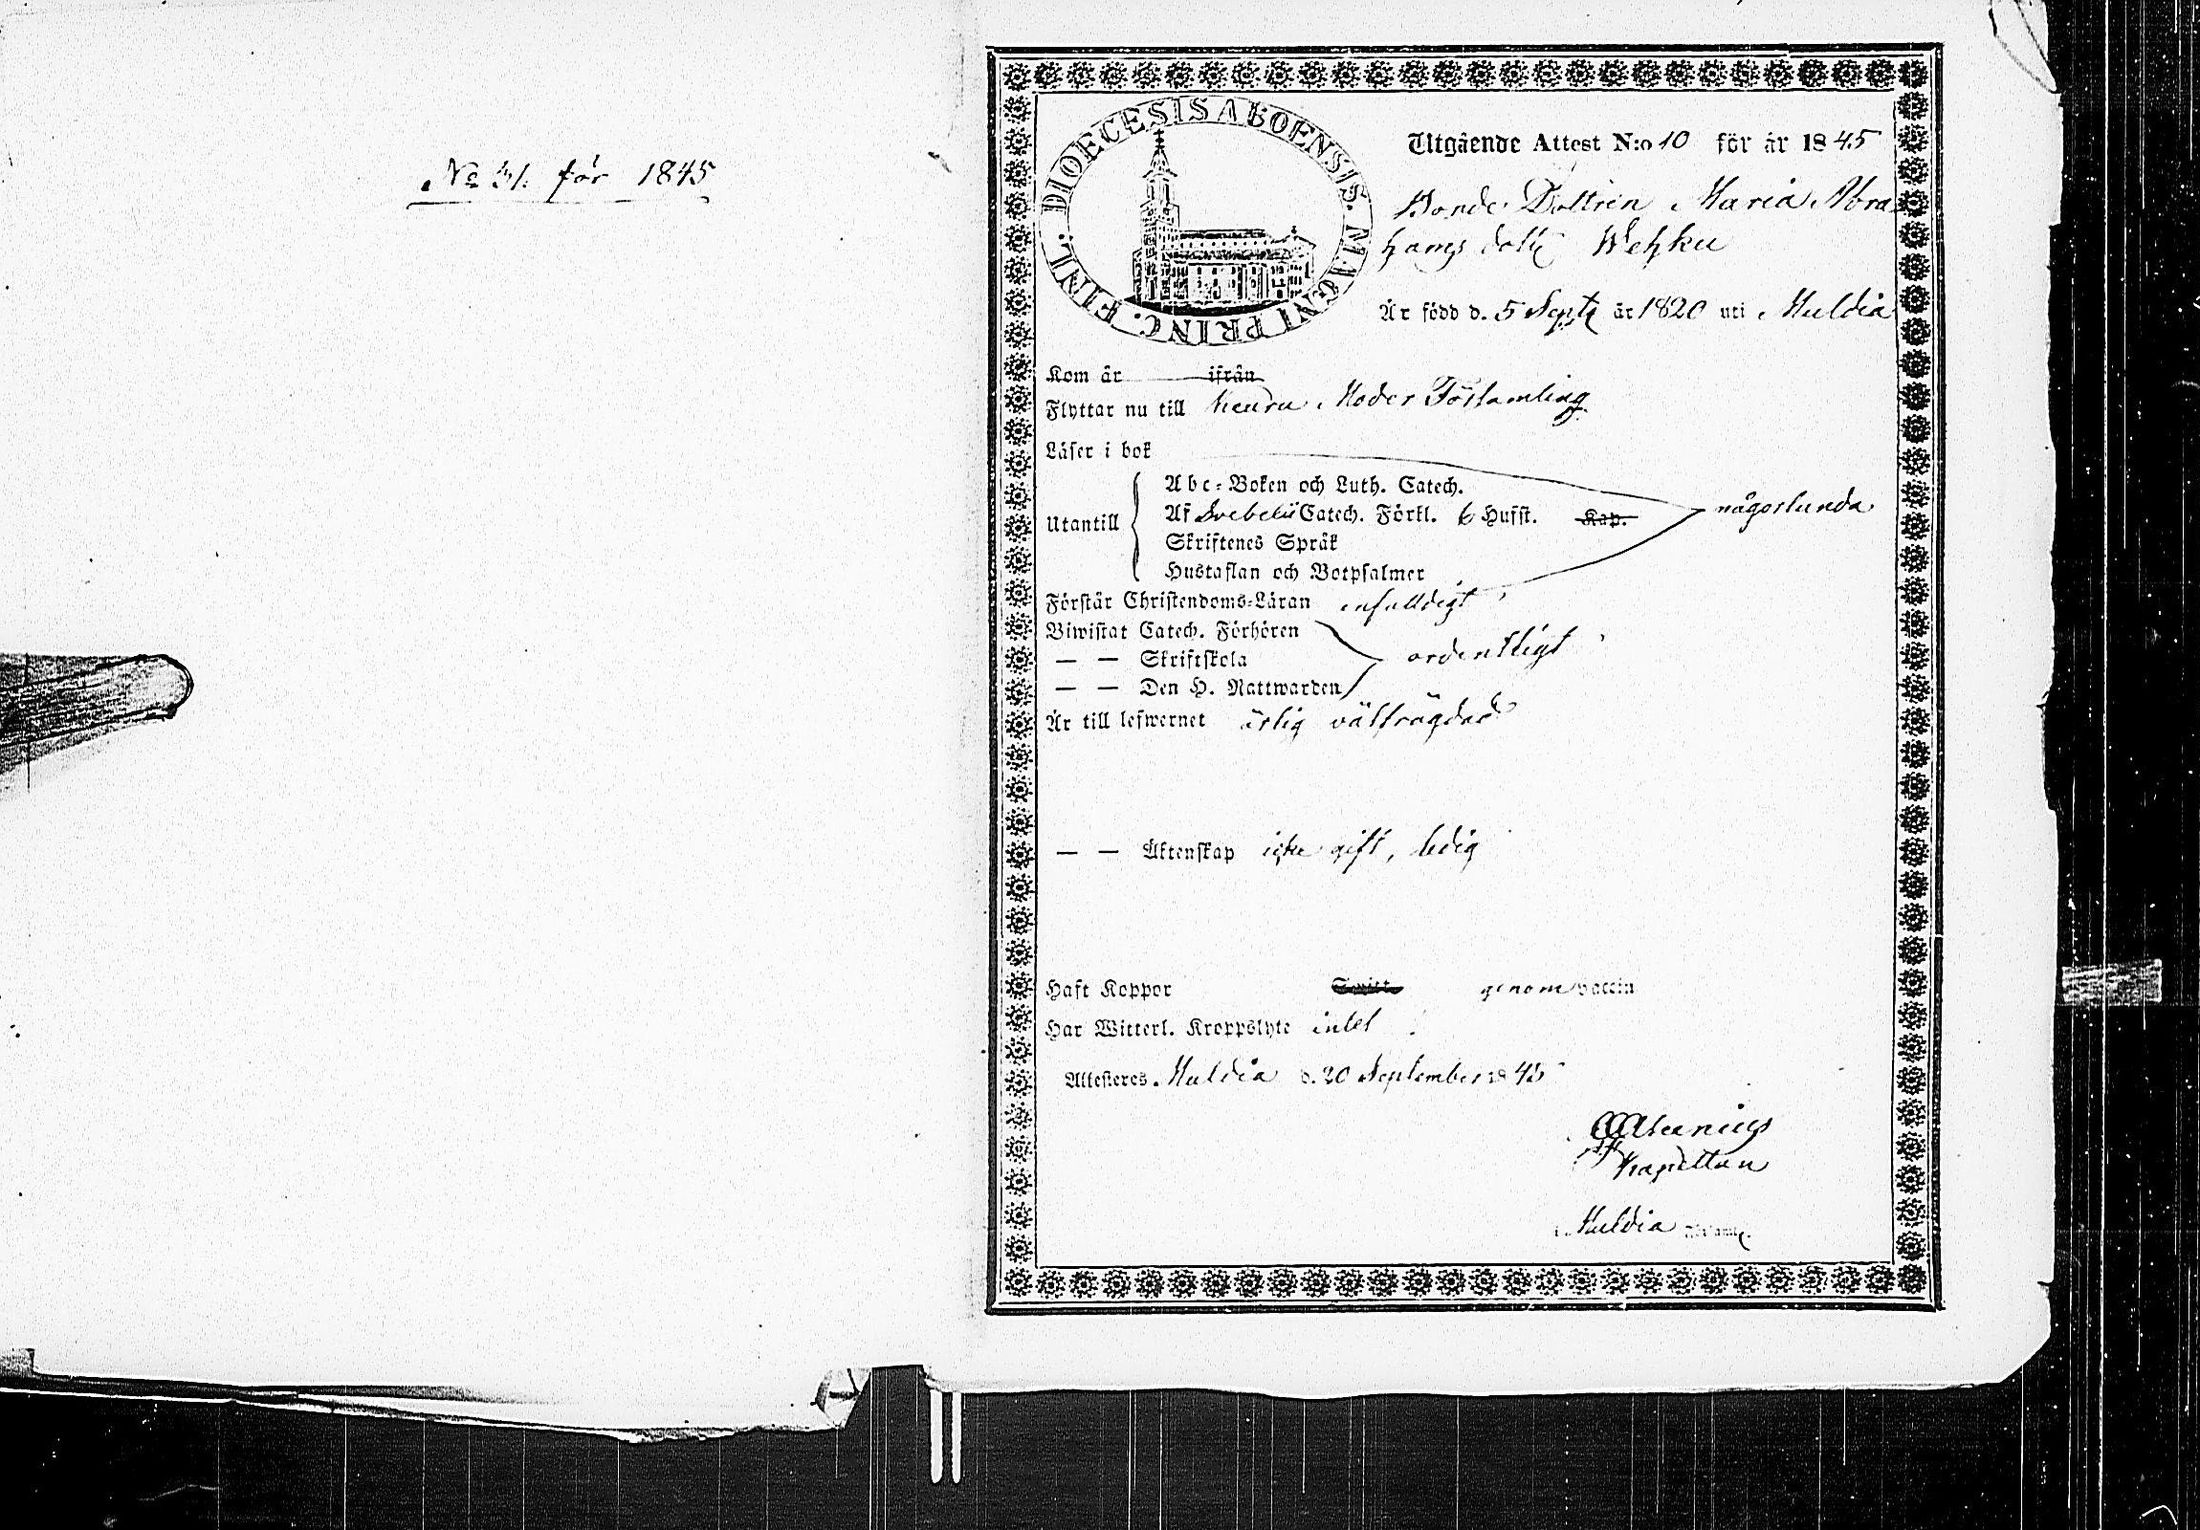 No 31. för 1845
DIOECESIS ABOENSIS. MAGNI PRINC. FINL.
Utgående Attest N:o 10 för år 1845
Bonde Dottren Maria Abra
hams dott Wehku
Är född d. 5 Sept år 1820 uti Muldia
Kom år ifrån
Flyttar nu till Keuru Moder Församling
Läser i bok
Abc-Boken och Luth. Catech.
Utantill Af Svebelii Catech. Förkl. 6 Hufst. Kap. någorlunda
Skriftenes Språk
Hustaflan och Botpsalmer
Förstår Christendoms-Läran enfaldigt
Biwistat Catech. Förhören
— — Skriftskola ordentligt
— — Den H. Nattwarden
Är till lefwernet ärlig välfrägdad
— — Äktenskap icke gift, ledig
Haft Koppor genom vaccin
Har Witterl. Kroppslyte intet
Attesteres Muldia d. 20 September 1845
Kapellan
i Muldia